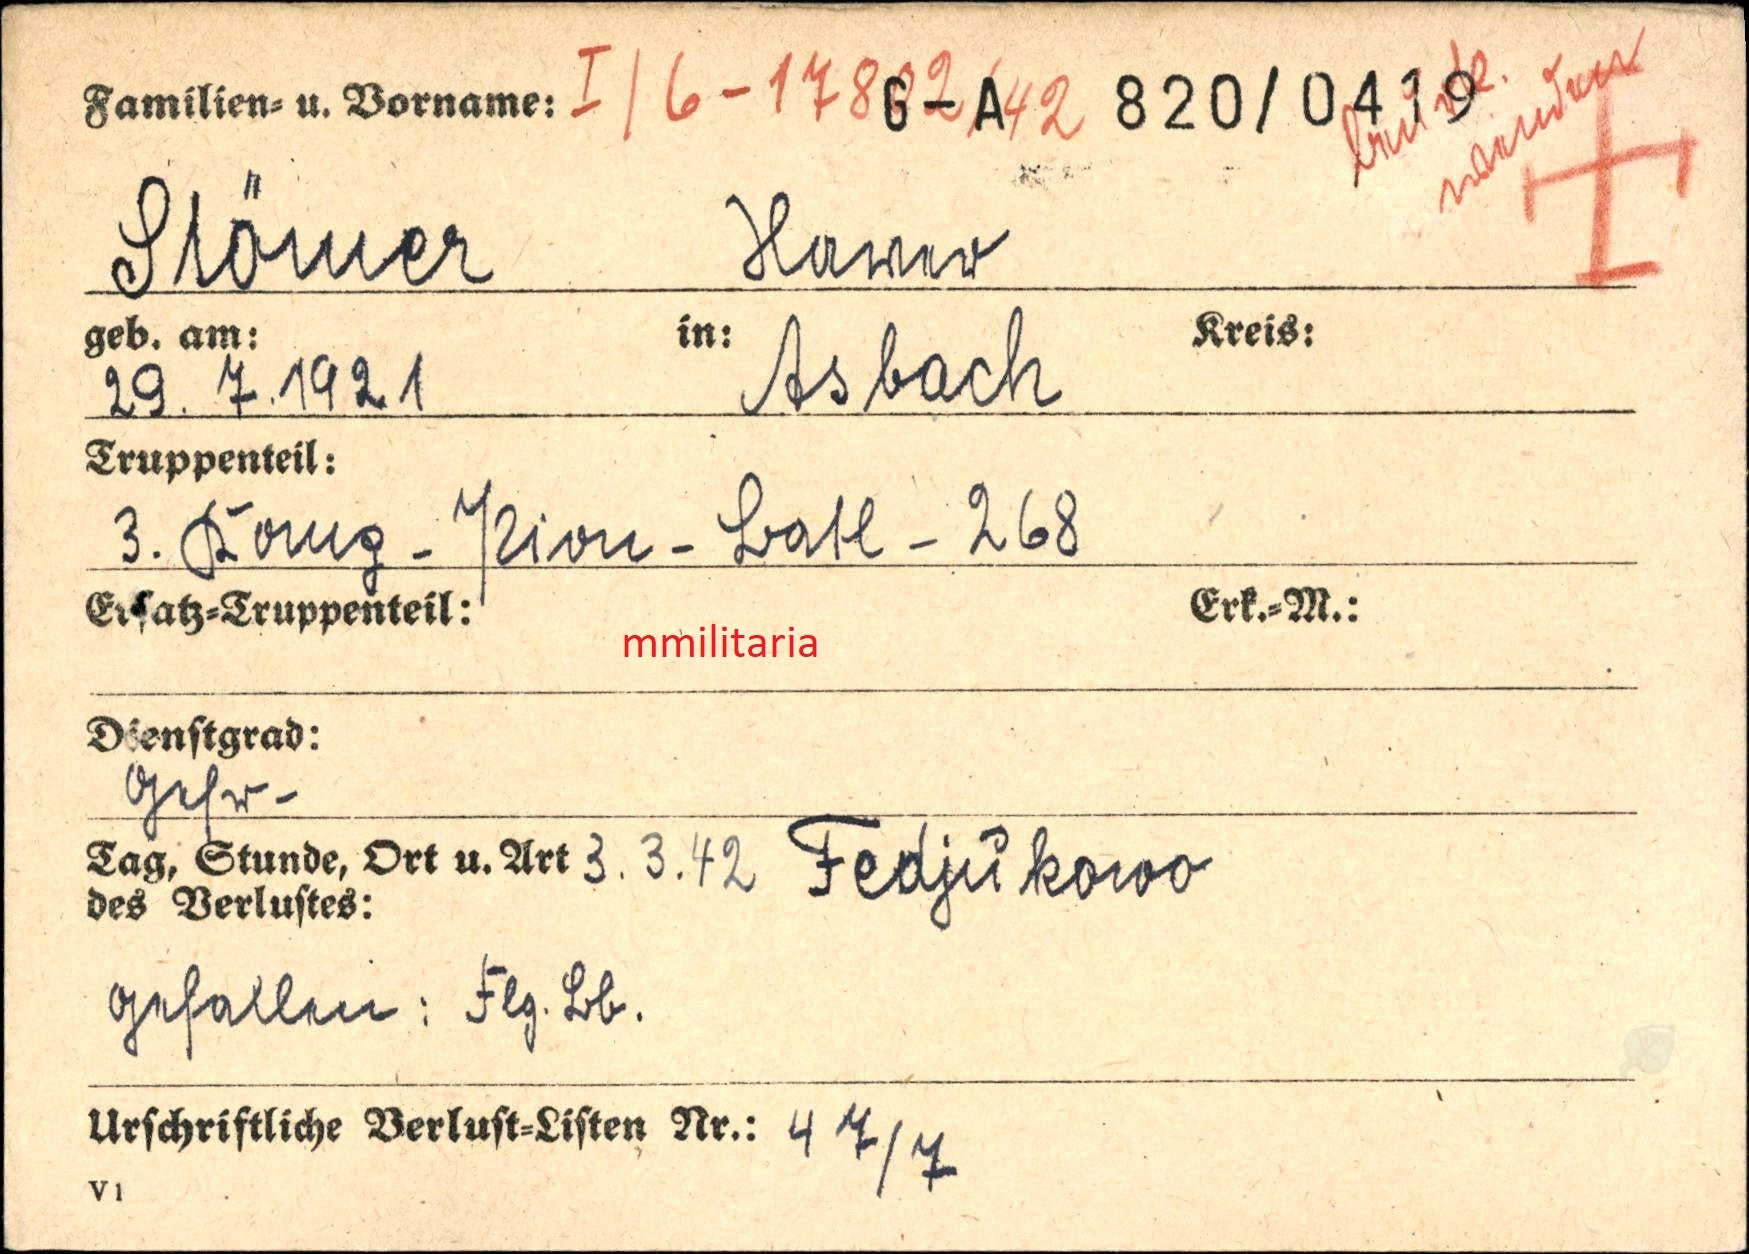 Familien- u. Vorname: I/6-17802/42 G-A 820/0419
Stömer Hawer
geb. am: in: Kreis:
29. 7. 1921 Asbach
Truppenteil:
3. - Pion - Batl - 268
Ersatz-Truppenteil: Erk.-M.:
mmilitaria
Dienstgrad:
Gefr-
Tag, Stunde, Ort u. Art 3. 3. 42 Fedjukowo
des Verlustes:
gefallen: Flg. Bb.
Urschriftliche Verlust-Listen Nr.: 47/7
V 1